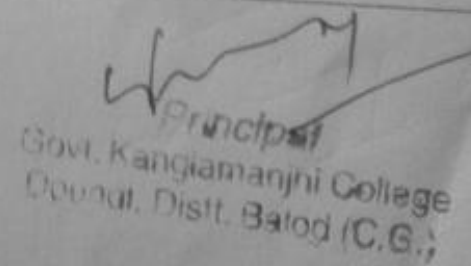 Principal
Govt. Kanglamanjhi College
Distt. Balod (C.G.)